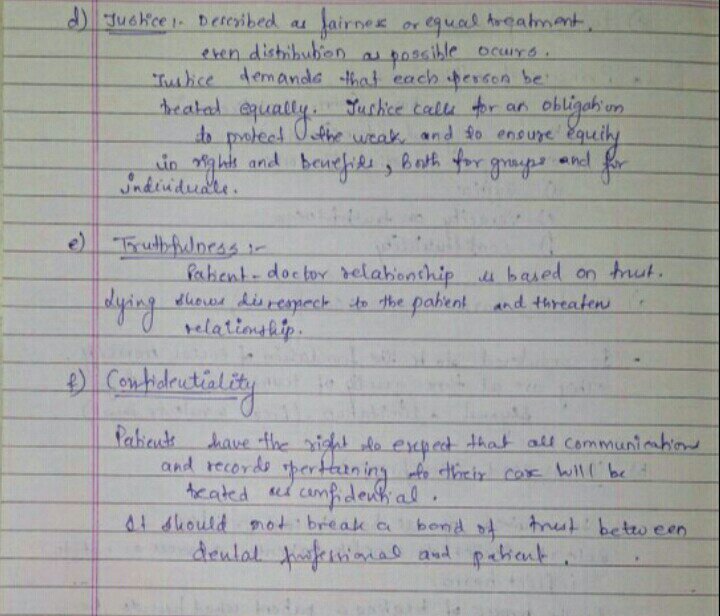 d) Justice :- Described as fairness or equal treatment.
even distribution as possible occurs.
Justice demands that each person be
treated equally. Justice calls for an obligation
to protect the weak and to ensure equity
in rights and benefits, both for groups and for
individuals.
e) Truthfulness :-
Patient-doctor relationship is based on trust.
Lying shows disrespect to the patient and threaten
relationship.
f) Confidentiality
Patients have the right to expect that all communications
and records pertaining to their care will be
treated as confidential.
It should not break a bond of trust between
dental professional and patient.